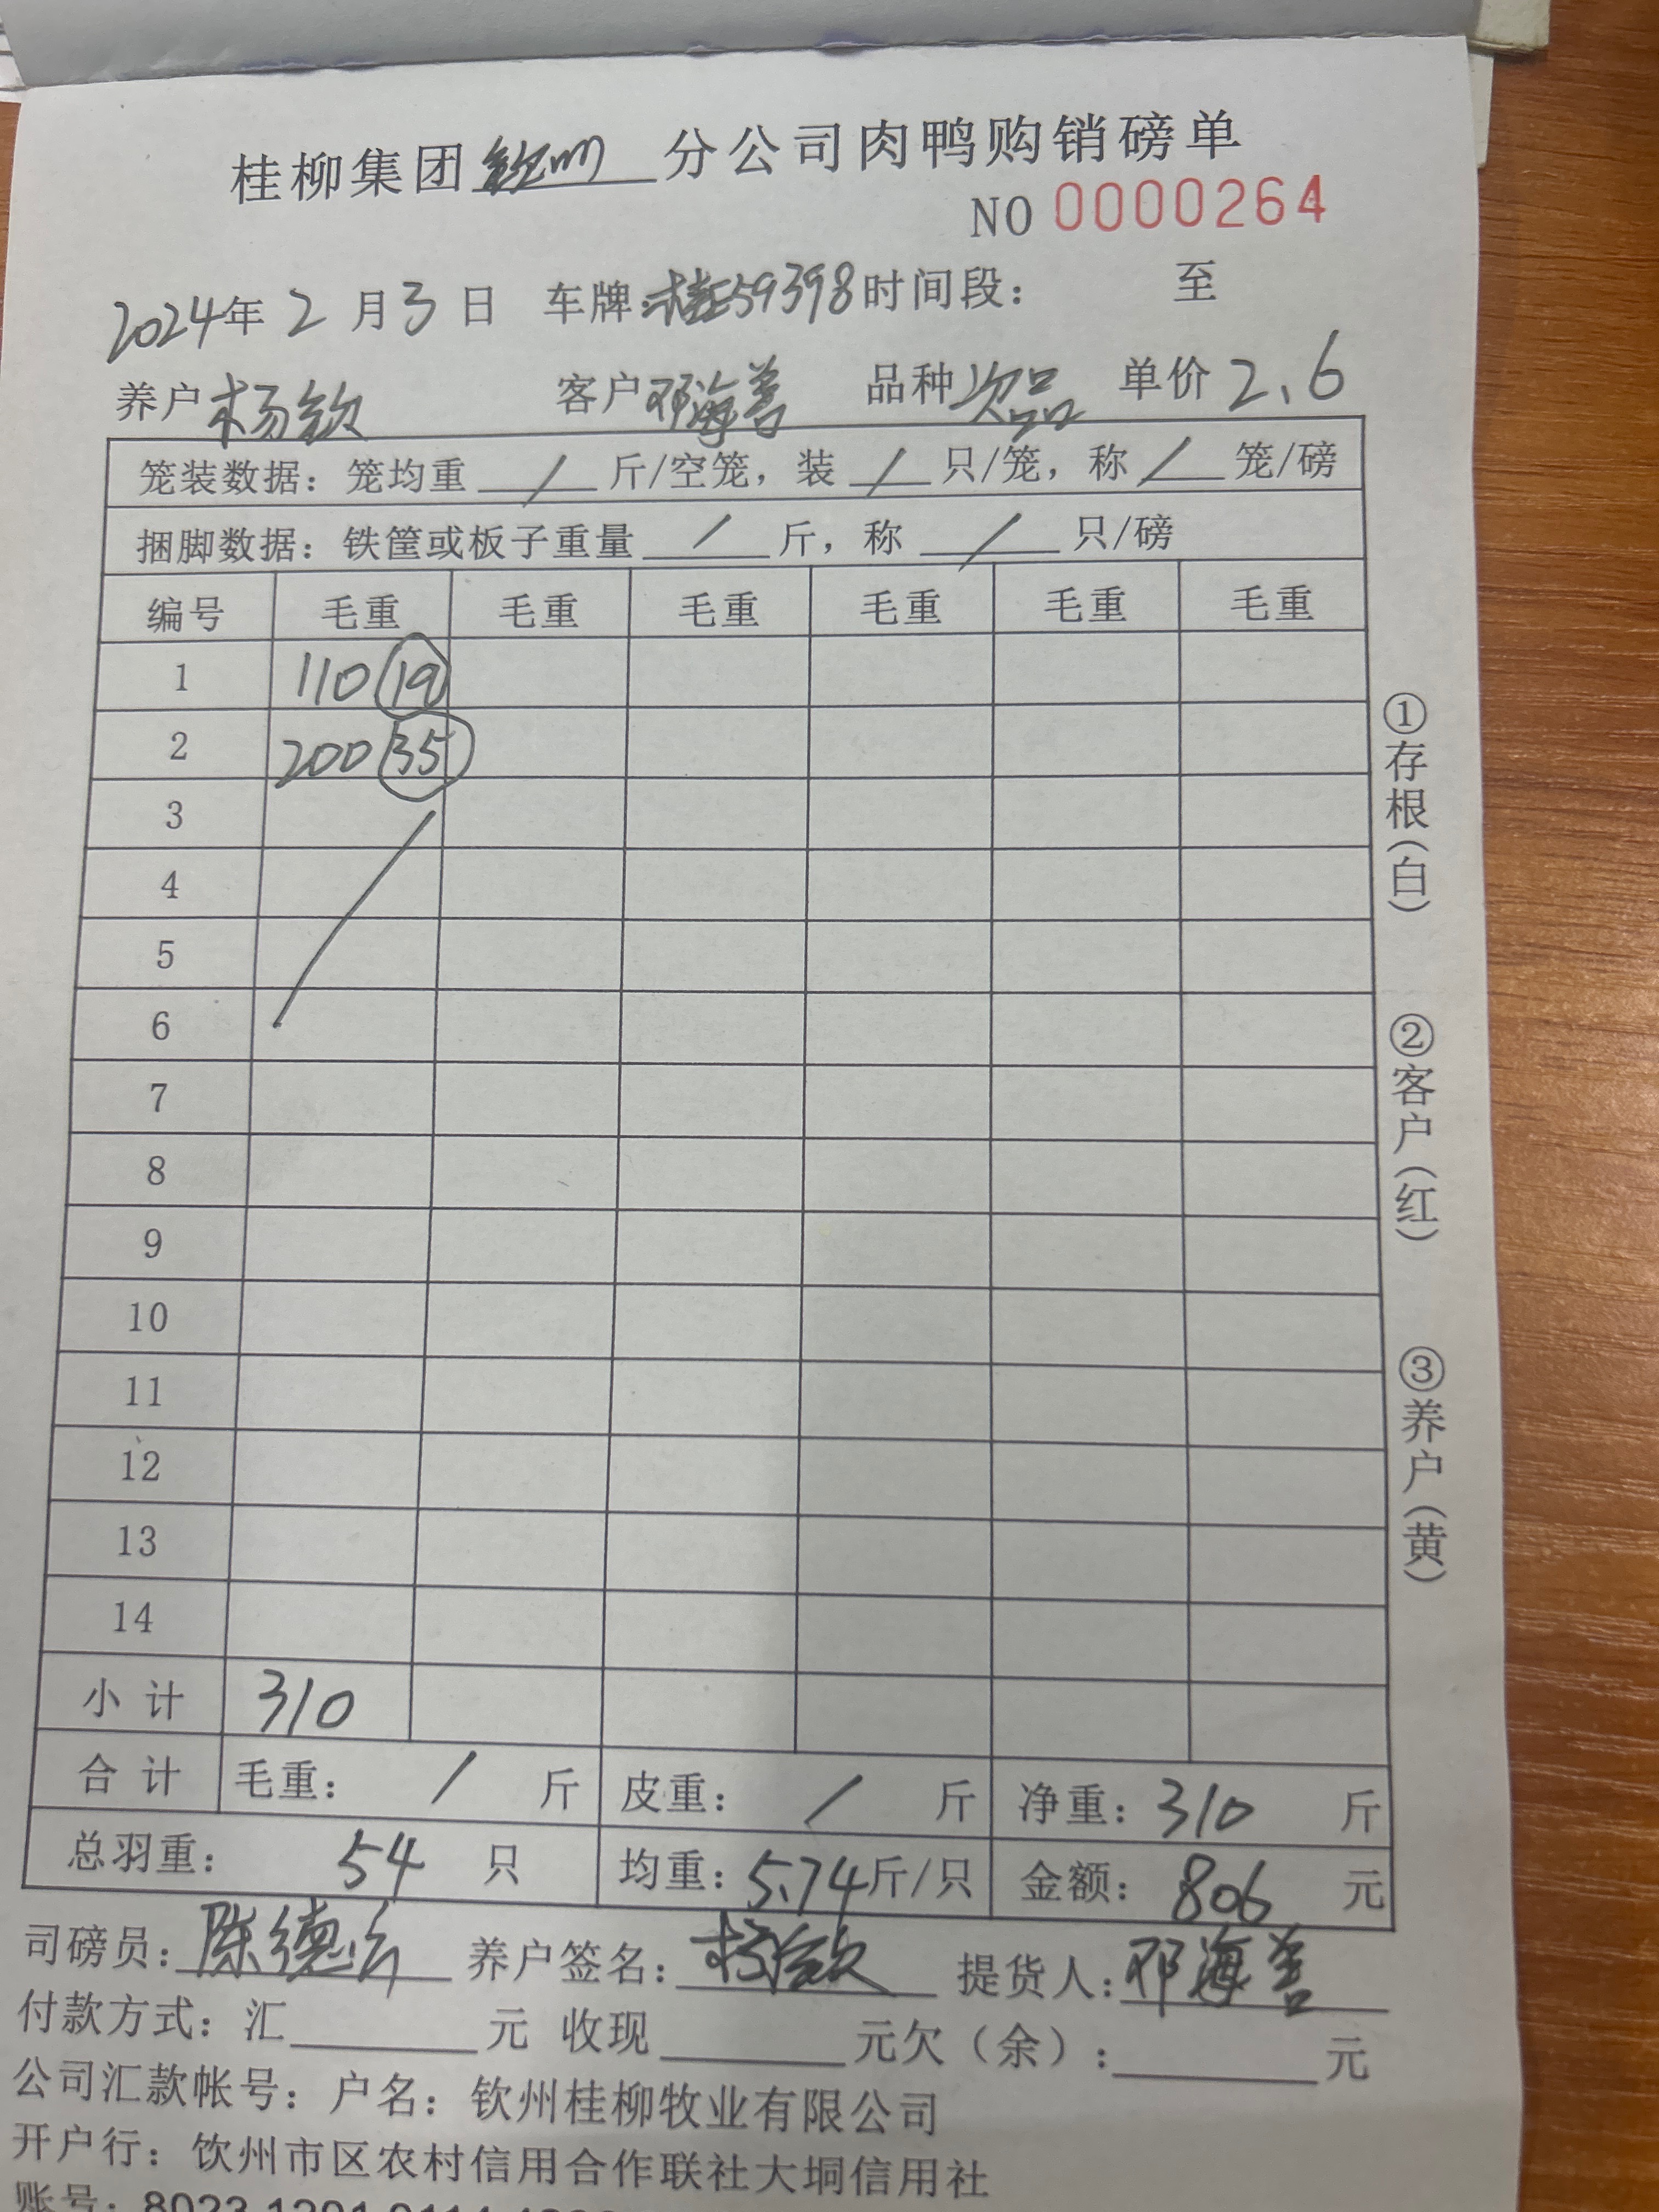 桂柳集团钦州分公司肉鸭购销磅单
NO 0000264
2024年2月3日 车牌:桂E59398时间段： 至
养户杨钦 客户邓海善 品种次品 单价2.6
笼装数据：笼均重 / 斤/空笼，装 / 只/笼，称 / 笼/磅
捆脚数据：铁筐或板子重量 / 斤，称 / 只/磅
编号 毛重 毛重 毛重 毛重 毛重 毛重
1 110 19
2 200 35
3
4
5
6
7
8
9
10
11
12
13
14
小计 310
合计 毛重： / 斤 皮重： / 斤 净重：310 斤
总羽重： 54 只 均重：5.74斤/只 金额： 806 元
司磅员：陈德 养户签名：杨钦 提货人：邓海善
付款方式：汇 元 收现 元欠（余）： 元
公司汇款帐号：户名：钦州桂柳牧业有限公司
开户行：钦州市区农村信用合作联社大垌信用社
账号：8023 1201 0114
①存根（白）
②客户（红）
③养户（黄）